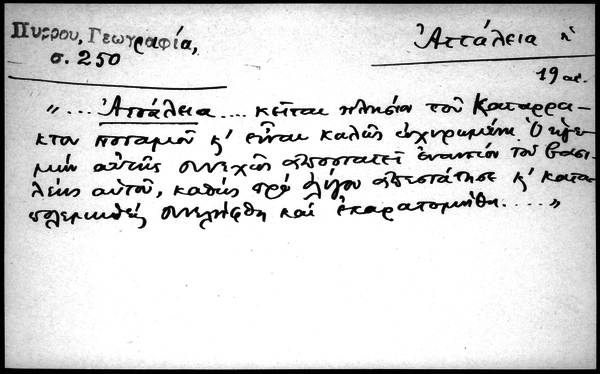 Πύρρου, Γεωγραφία,
σ. 250
Ἀττάλεια η´
19 αἰ.
"... Ἀττάλεια .... κεῖται πλησίον τοῦ Καταρρά-
κτου ποταμοῦ κ' εἶναι καλῶς ὠχυρωμένη. Ὁ ἡγε-
μὼν αὐτῆς συνεχῶς ἀποστατεῖ ἐναντίον τοῦ βασι-
λέως αὐτοῦ, καθὼς πρὸ ὀλίγου ἀπεστάτησε κ' κατα-
πολεμηθεὶς συνελήφθη καὶ ἐκαρατομήθη ...."